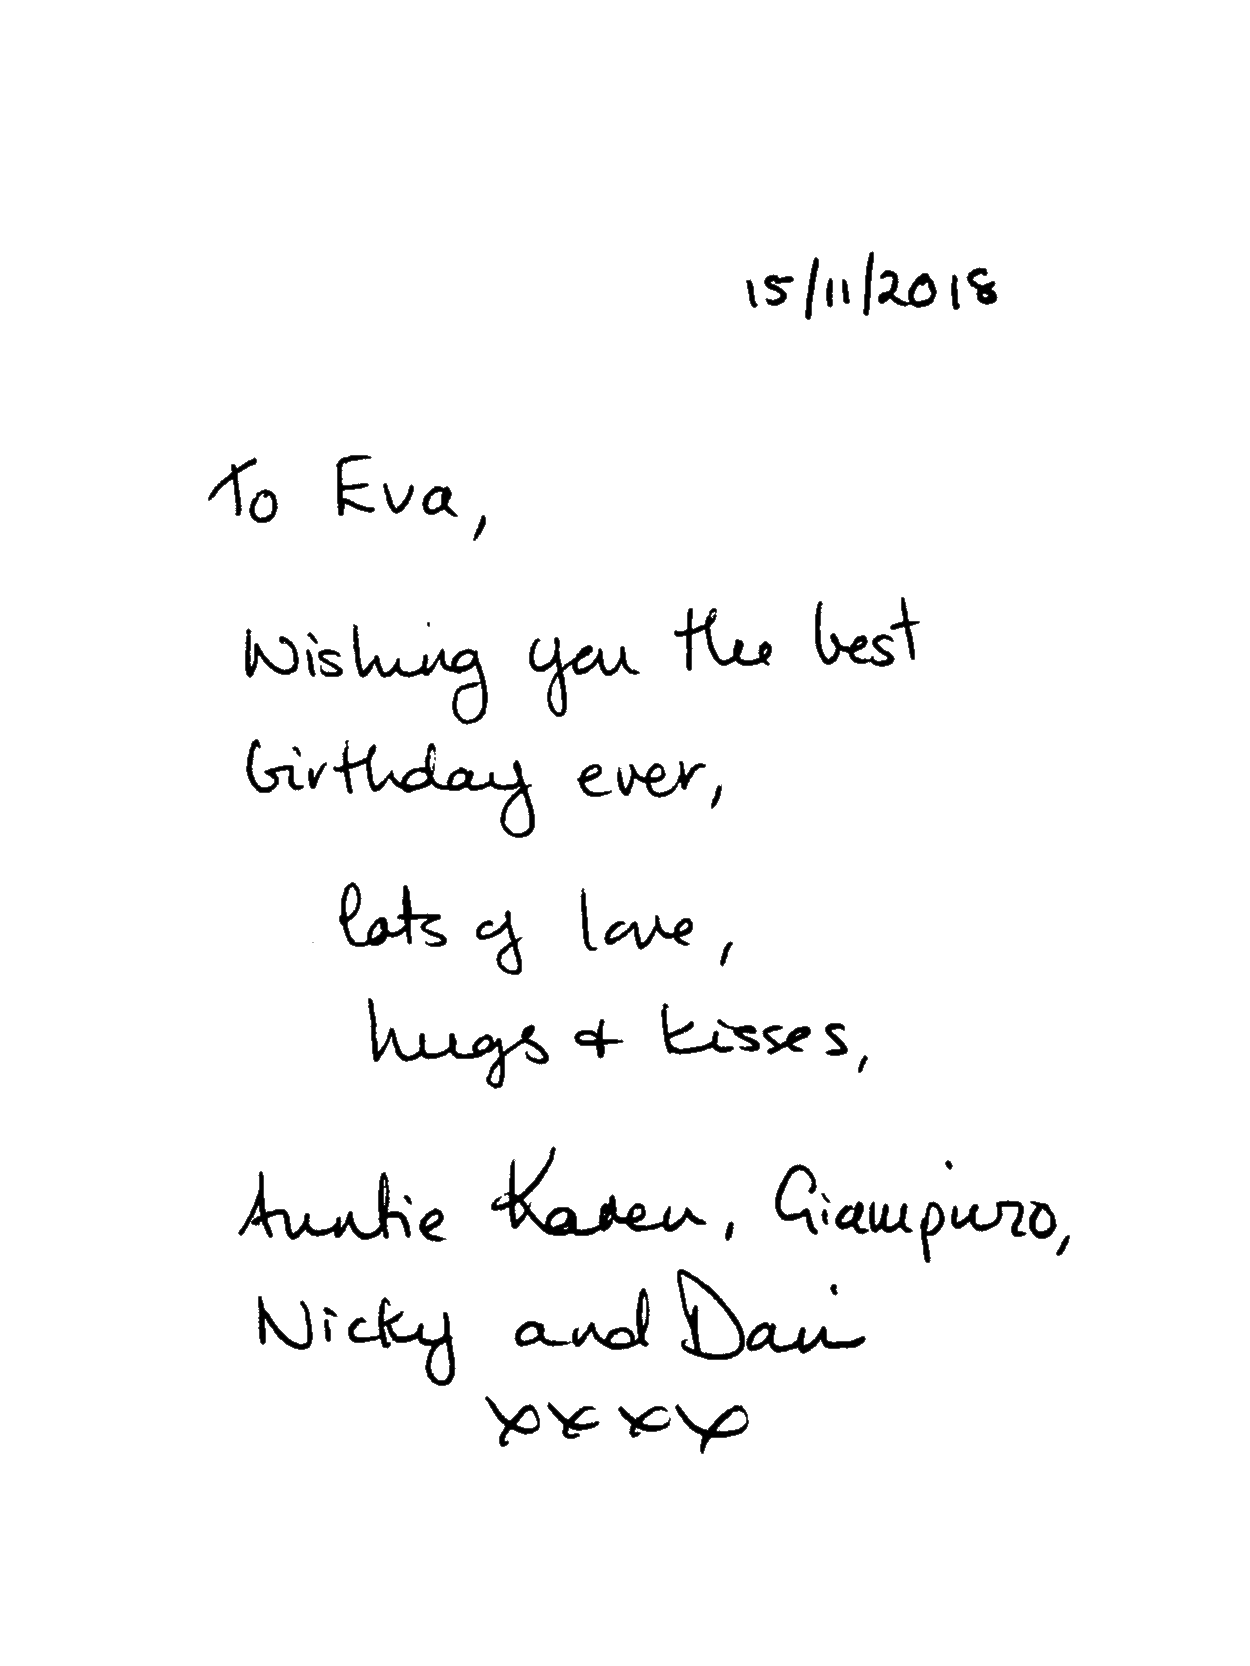 15/11/2018
To Eva,
Wishing you the best
birthday ever,
lots of love,
hugs + kisses,
Auntie Karen, Giampiero,
Nicky and Dani
xxxx